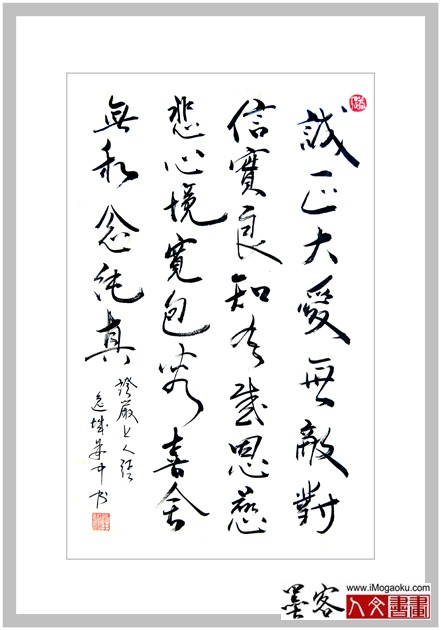 誠正大愛無敵對
信實良知感恩慈
悲心境寬包容喜舍
無私念純真
證嚴上人語
書
墨客
www.iMogaoku.com
人文書畫